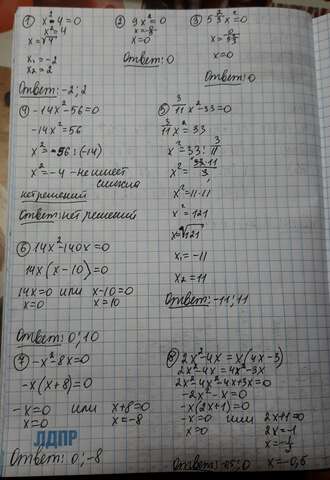 ① x²-4=0
x²=4
x=√4
x₁=-2
x₂=2
Ответ: -2; 2
② 9x²=0
x=0
Ответ: 0
③
x=0
Ответ: 0
④ -14x²-56=0
-14x²=56
x²=-56:(-14)
x²=-4 - не имеет
смысла
нет решений
Ответ: нет решений
⑤ 3/11 x²-33=0
3/11 x²=33
x²=33:3/11
x²=33·11/3
x²=11·11
x²=121
x=√121
x₁=-11
x₂=11
Ответ: -11; 11
⑥ 14x²-140x=0
14x(x-10)=0
14x=0 или x-10=0
x=0 x=10
Ответ: 0; 10
⑦ -x²-8x=0
-x(x+8)=0
-x=0 или x+8=0
x=0 x=-8
ЛДПР
Ответ: 0; -8
⑧ 2x²-4x=x(4x-3)
2x²-4x=4x²-3x
2x²-4x²-4x+3x=0
-2x²-x=0
-x(2x+1)=0
-x=0 или 2x+1=0
x=0 2x=-1
x=-½
x=-0,5
Ответ: -0,5; 0